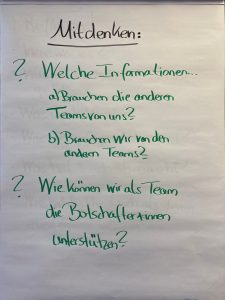 Mitdenken:
? Welche Informationen...
a) Brauchen die anderen
Teams von uns?
b) Brauchen wir von den
andern Teams?
? Wie können wir als Team
die Botschafter*innen
unterstützen?